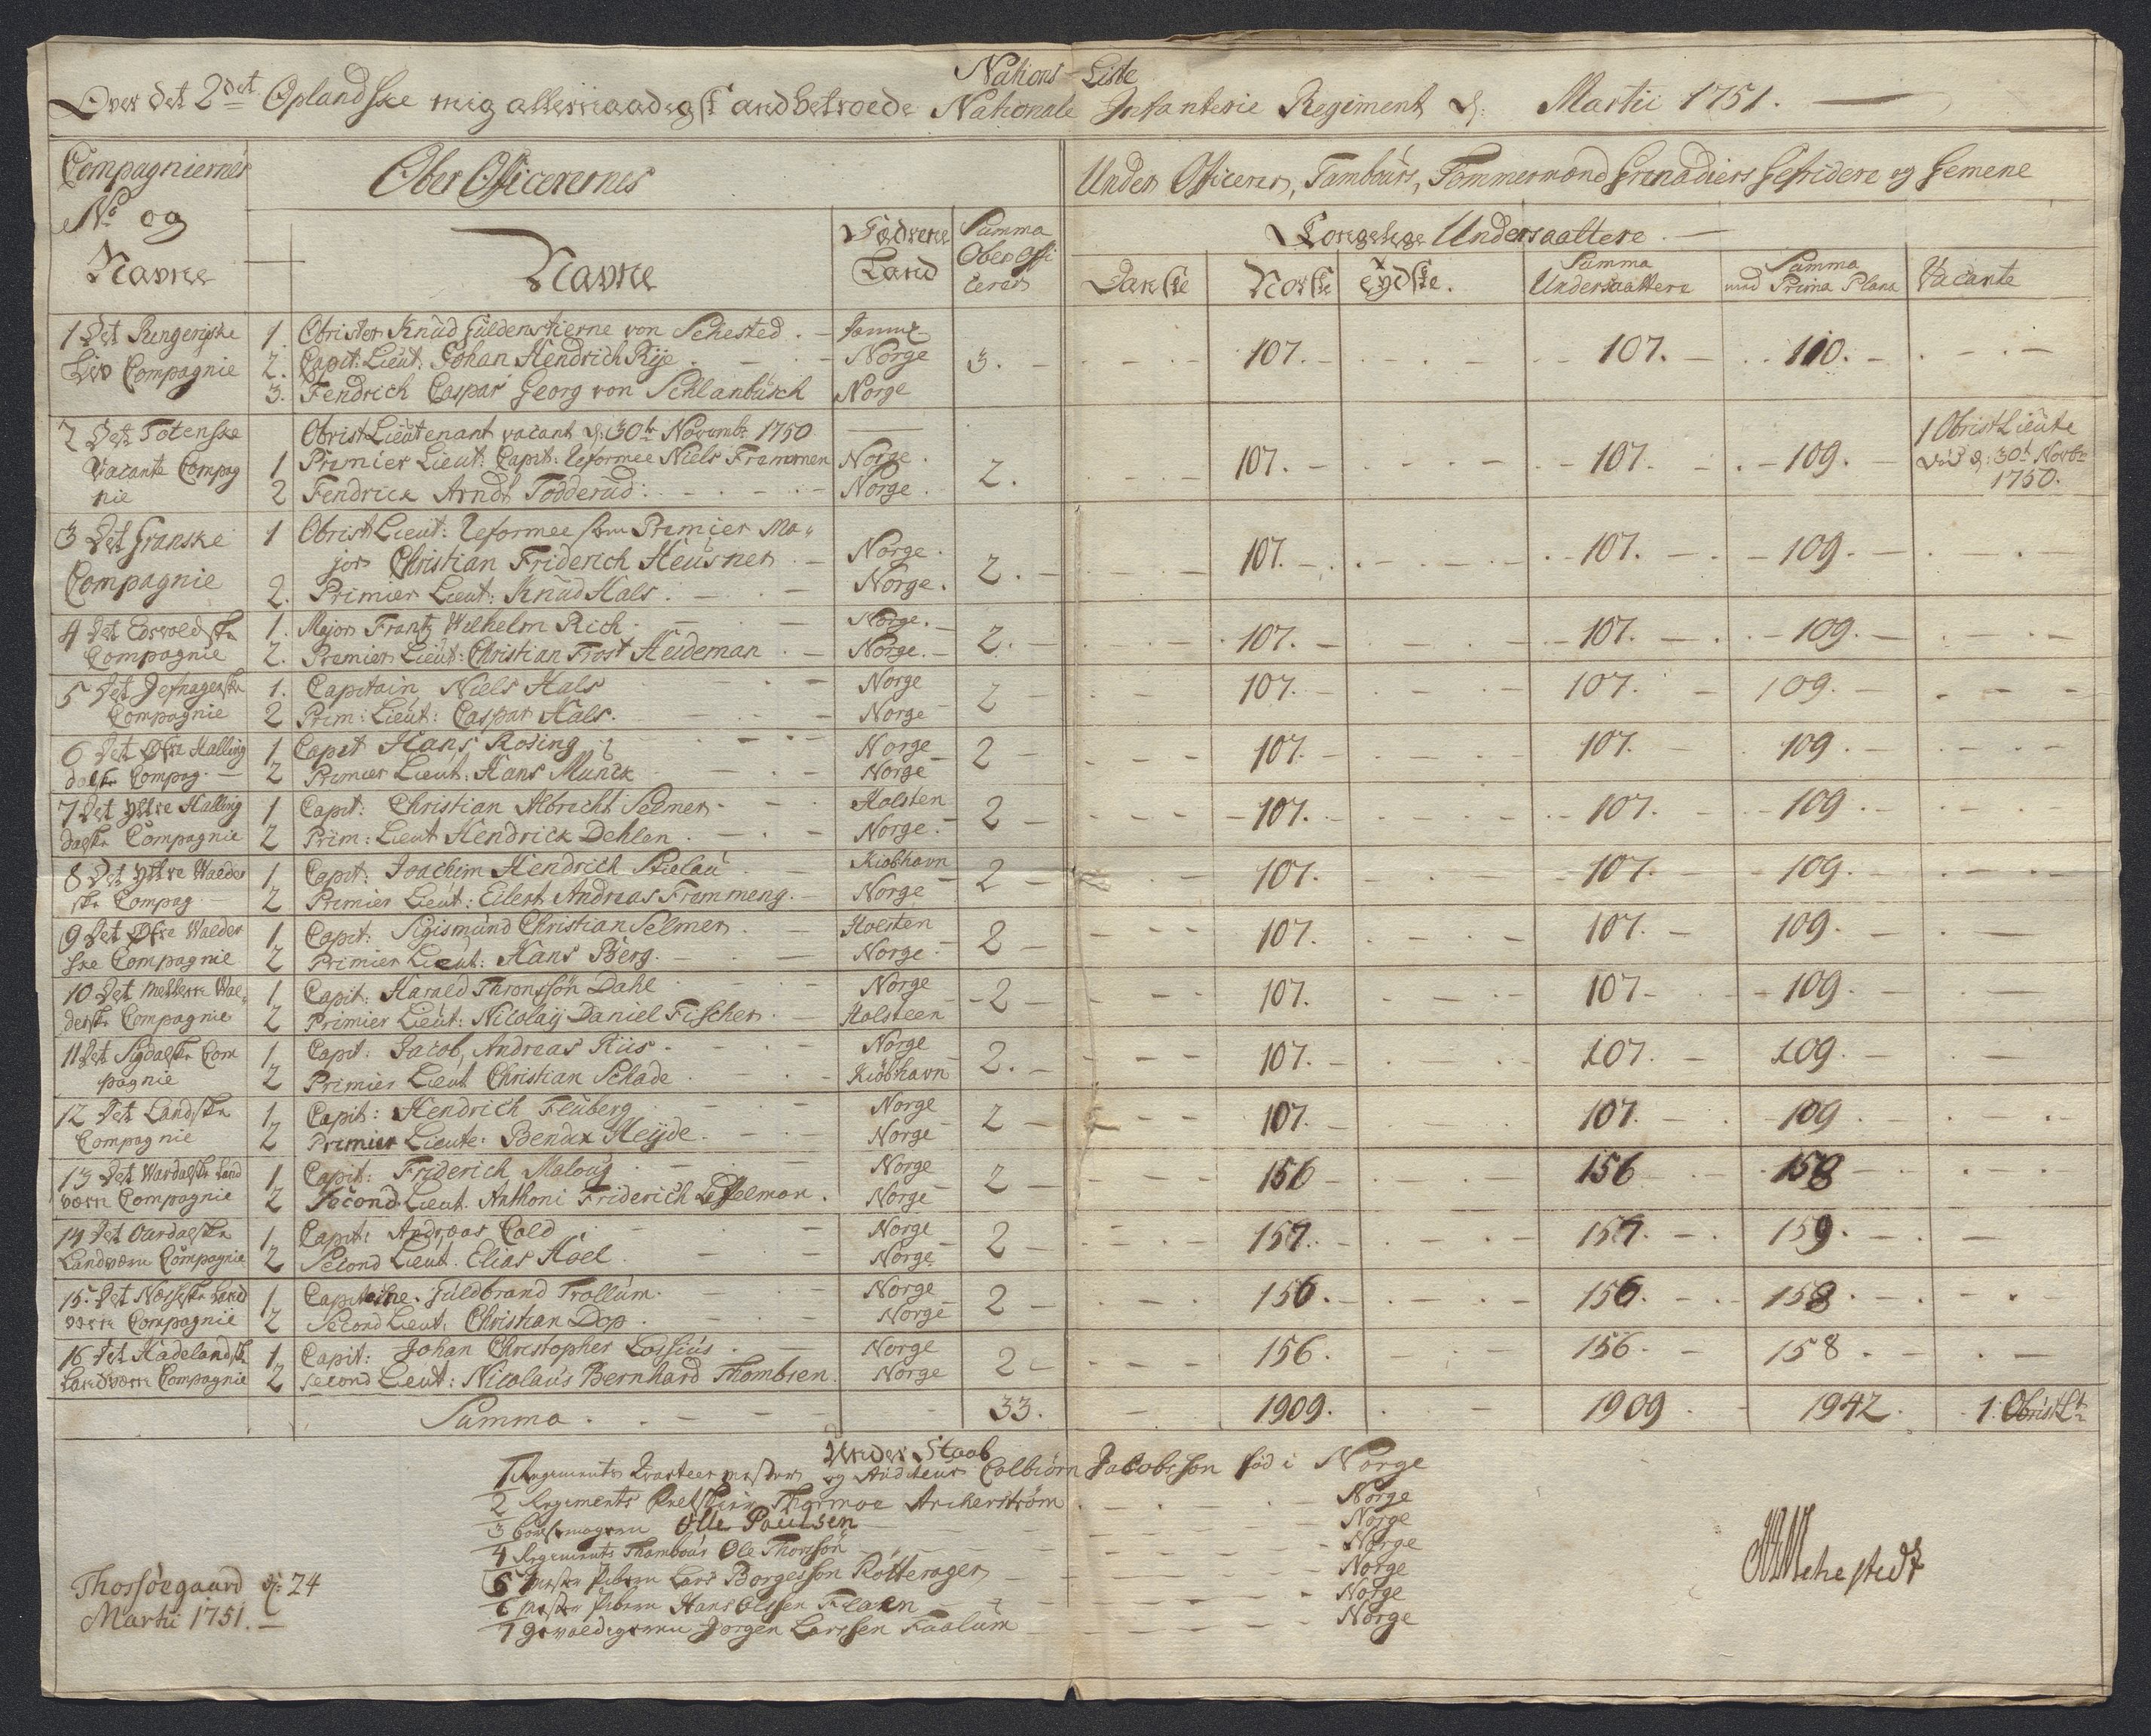 Nations Liste
Over det 2det Oplandske mig allernaadigst anbetroede Nationale Infanterie Regiment d: Martii 1751.
Compagniernes No og Navne
Ober Officerernes
Under Officerer, Tambours, Tømmermænd Grenadiers Gefridere og Gemene
Navne
Fædrene Land
Summa Ober Officerer
Kongelige Undersaattere
Danske
Norske
Tydske.
Summa Undersaattere
Summa med Prima Plana
Vacante
1 Det Ringerigske Liv Compagnie
1. Obrister Knud Güldenstierne von Sehested. Norge 3. 107. 107. 110.
2. Capit: Lieut: Johan Hendrich Rye Norge
3. Fendrich Caspar Georg von Schlanbusch Norge
2 Det Totenske Vacante Compagnie
ObristLieutenant vacant d: 30te Novembr 1750
1 Premier Lieut: Capit: Reformee Niels Frammen Norge. 2. 107. 107. 109. 1 ObristLieute død d: 30te Novbr 1750.
2 Fendrick Arndt Todderud: Norge.
3 Det Granske Compagnie
1 ObristLieut: Reformee som Premier Ma„
jor Christian Friderich Heusner Norge. 2. 107. 107. 109.
2. Primier Lieut: Knud Hals. Norge.
4 Det Edsvoldske Compagnie
1. Major Frantz Wilhelm Rich Norge. 2. 107. 107. 109.
2. Premier Lieut: Christian Frost Heideman Norge.
5 Det Compagnie
1. Capitain Niels Hals Norge 2 107. 107. 109.
2 Prim: Lieut: Caspar Hals. Norge
6 Det Øfre Hallingdalske Compag.
1 Capit Hans Rosing Norge 2 107. 107. 109.
2 Premier Lieut: Hans Munck Norge
7 Det Yttre Hallingdalske Compagnie
1 Capit: Christian Albrecht Selmer Holsten 2 107. 107. 109.
2 Prim: Lieut Hendrick Dehlen. Norge.
8 Det Yttre Walderske Compag.
1 Capit: Joachim Hendrich Stielau Kiobhavn 2 107. 107. 109.
2 Premier Lieut: Eilert Andreas Frammeng. Norge
9 Det Øfre Walderske Compagnie
1 Capit: Sigismund Christian Selmer. Holsten 2 107. 107. 109.
2 Primier Lieut: Hans Berg. Norge.
10 Det Mellerre Walderske Compagnie
1 Capit: Harald Thronssøn Dahl Norge 2 107. 107 109.
2 Primier Lieut: Nicolaij Daniel Fischer. Holsteen
11 Det Sigdalske Compagnie
1 Capit: Jacob Andreas Riis. Norge 2. 107. 107. 109.
2 Primier Lieut Christian Schade. Kiøbhavn
12 Det Landske Compagnie
1 Capit: Hendrich Fleuberg Norge 2 107. 107. 109
2 Premier Lieute: Bendix Heijde. Norge
13 Det Wardalske Landværn Compagnie
1 Capit: Friderich Maloug Norge 2 156 156 158
2 Second Lieut. Anthoni Friderich Norge
14 Det Aurdalske Landværn Compagnie
1 Capit: Andreas Cold Norge 2 157. 157. 159.
2 Second Lieut. Elias Hoel Norge
15. Det Næsseske Landværn Compagnie
1 Capitaine. Guldbrand Trollum. Norge 2 156. 156. 158.
2 Second Lieut. Christian Dop. Norge
16 Det Hadelandske Landværn Compagnie
1 Capit: Johan Christopher Norge 2 156. 156. 158.
2 Second Lieut: Nicolaus Bernhard Thombsen. Norge
Summa 33. 1909. 1909 1942. 1. ObristLt
Under Staab
1 Regiments Qvarteermester og Auditeur Colbiørn Jacobsson fød i Norge
2 Regiments Thormoe Ancherstrøm Norge
3 Olle Paulsen Norge
4 Regiments Thambour Ole Thorssøn Norge
5 Mester Lars Borgersson Rotterager Norge
6 Mester Hans Olssen Flaen Norge
7 Gevaldigeren Jørgen Larssen Faalum Norge
Thossøegaard d: 24
Martii 1751.
Sehestedt